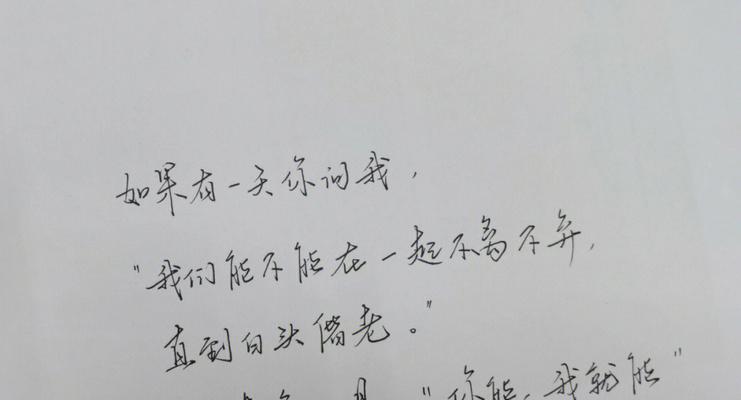 如果有一天你问我，
"我们能不能在一起不离不弃，
直到白头偕老。"
"你能，我就能"